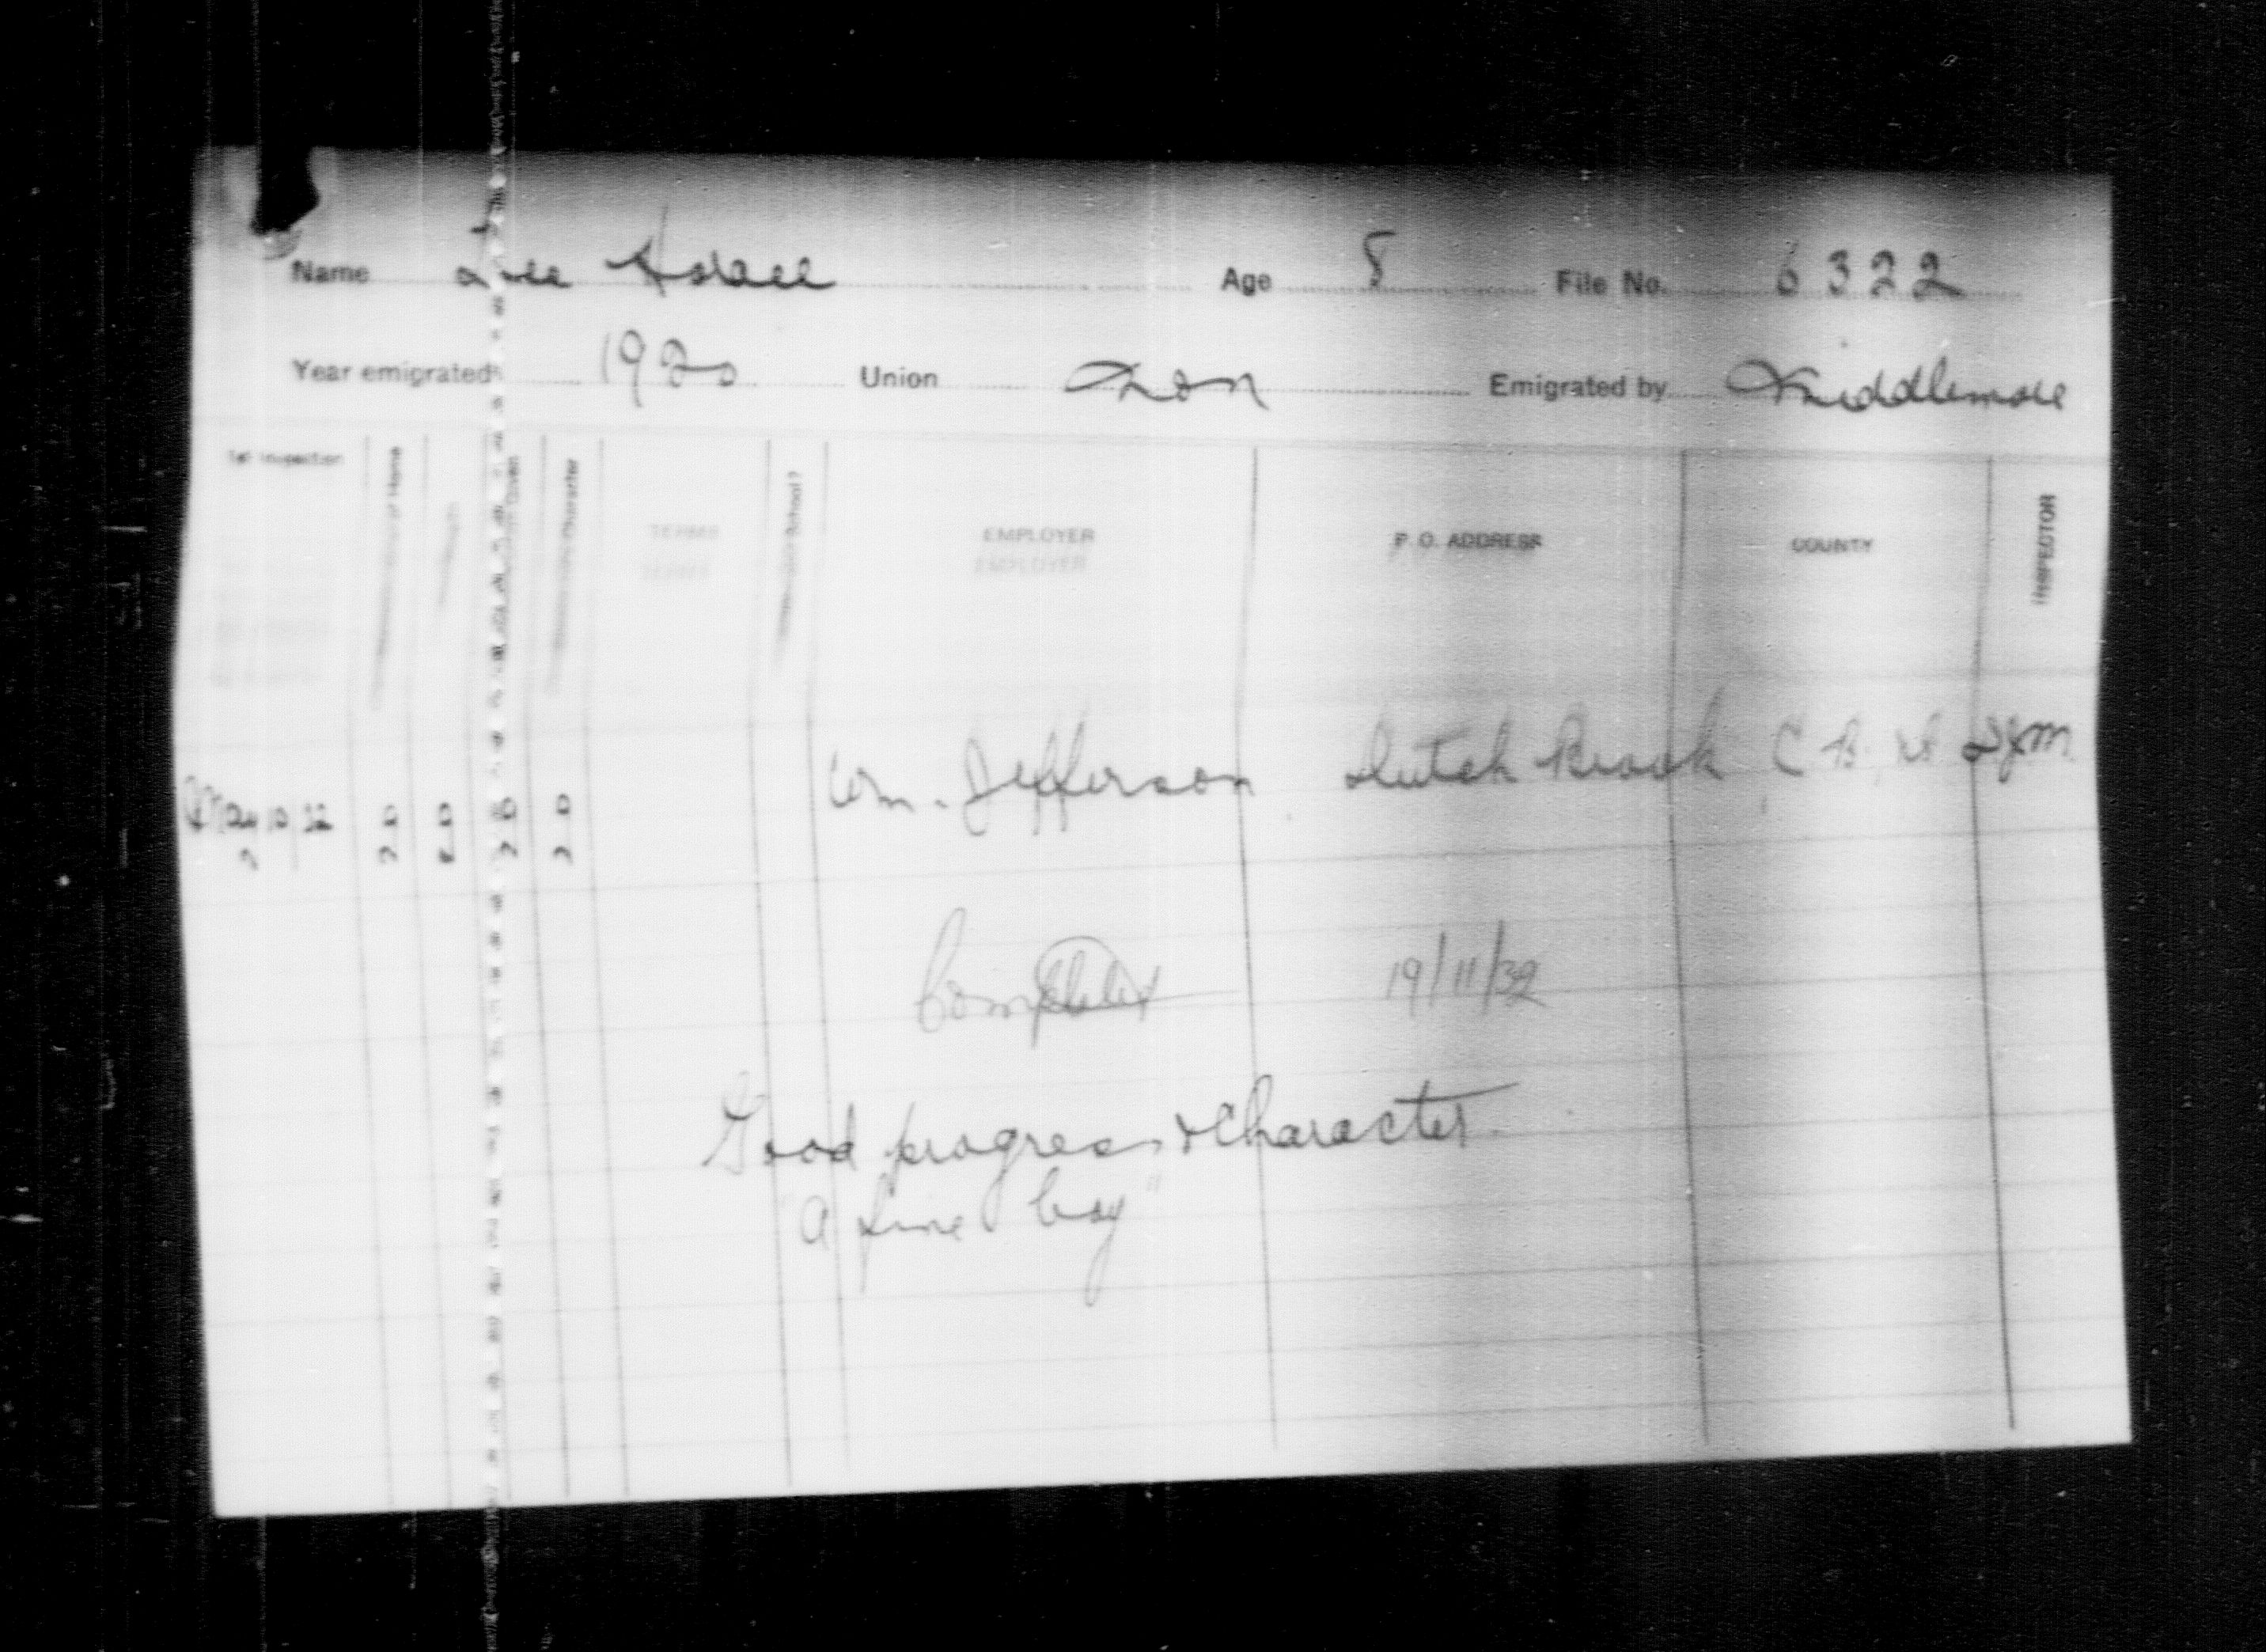 Name Lee Horace Age 8 File No. 6322
Year emigrated 1920 Union Non Emigrated by Middlemore
1st Inspection of Home Character TERMS School? EMPLOYER P. O. ADDRESS COUNTY INSPECTOR
TERMS EMPLOYER
Wm. Jefferson Dutch Brook C. B.
May 10 22
Complete 19/11/32
Good progress & Character
"A fine boy"